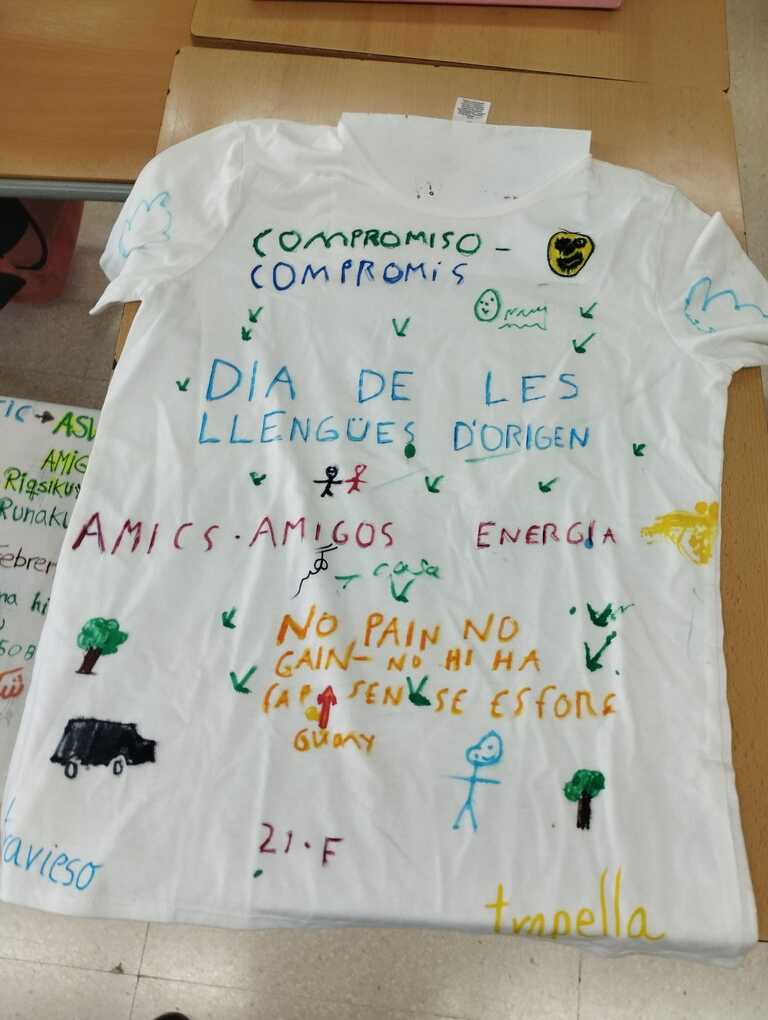 COMPROMISO -
COMPROMIS
DIA DE LES
LLENGÜES D'ORIGEN
AMICS · AMIGOS ENERGIA
casa
NO PAIN NO
GAIN- NO HI HA
CAP SENSE ESFORÇ
GUANY
21·F
avieso
trapella
TIC → ASU
AMIG
Riqsikuy
Runaku
ebrer
na hi